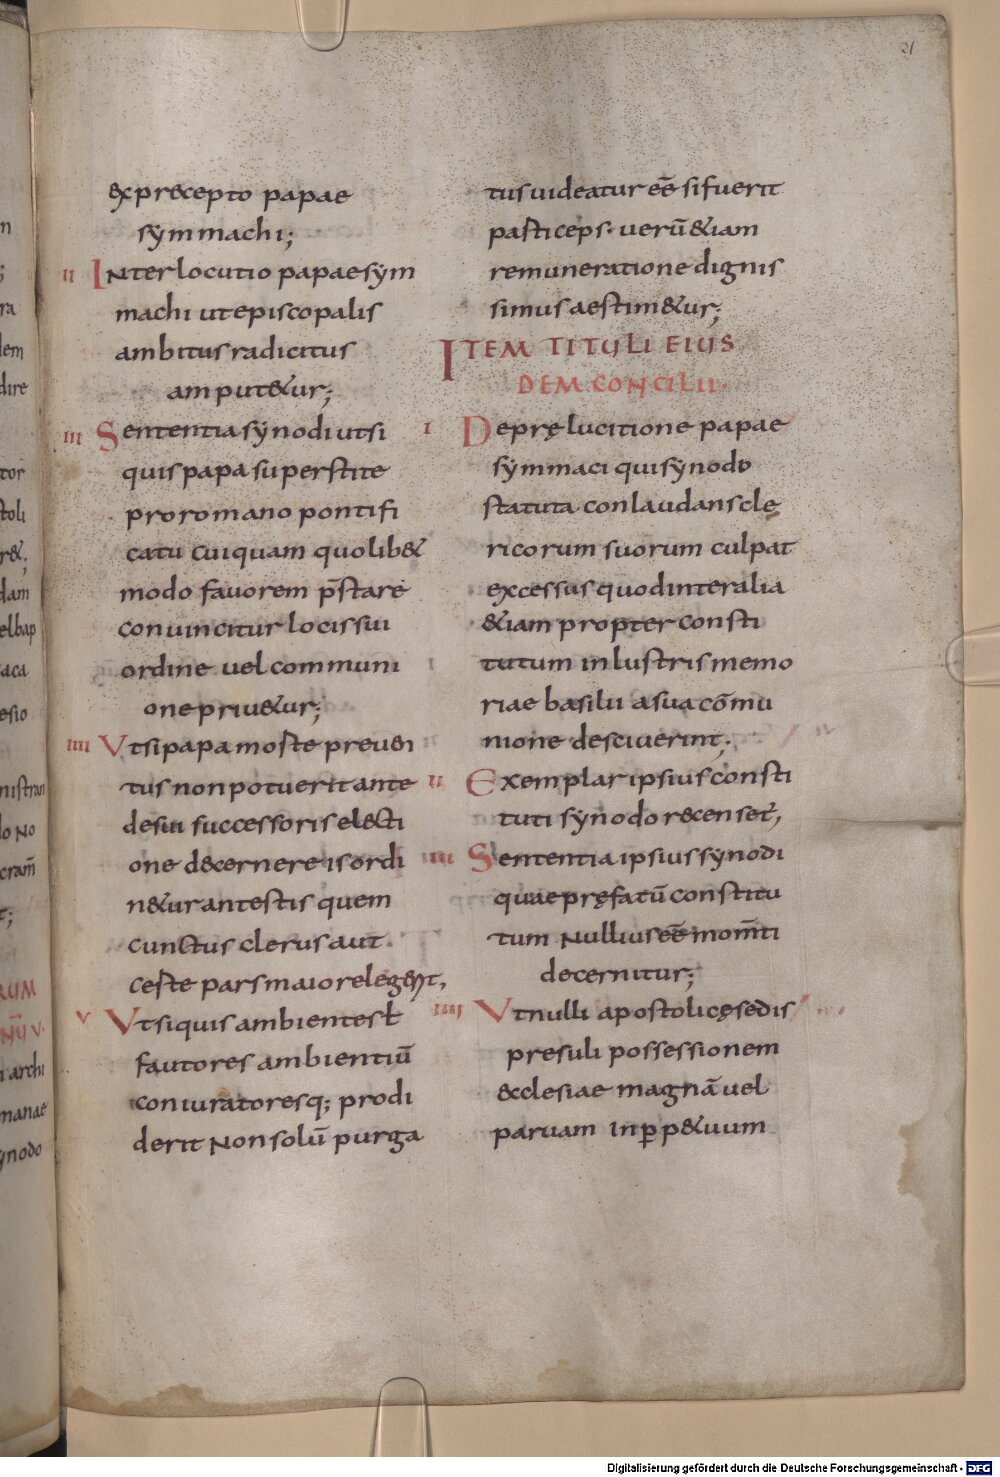 21
&xprecepto papae
symmachi;
II INterlocutio papae sym
machi ut episcopalis
ambitus radicitus
amput&ur;
III Sententia synodi ut si
quis papa superstite
pro romano pontifi
catu cuiquam quolib&
modo fauorem p̄stare
conuincitur loci sui
ordine uel communi
one priu&ur;
IIII Vt si papa moste preuen
tus non potuerit ante
de sui successoris electi
one decernere is ordi
n&ur antestis quem
cunctus clerus aut
ceste pars maior elegent,
V Vt si quis ambientes ł
fautores ambientiū
coniuratoresq; prodi
derit Non solū purga
tus uideatur eē si fuerit
pasticeps· uerū &iam
remuneratione dignis
simus aestim&ur;
ITEM TITULI EIUS
DEM CONCILII·
I De pręlucitione papae
symmaci qui synodo
statuta conlaudans clę
ricorum suorum culpat
excessus quod inter alia
&iam propter consti
tutum inlustris memo
riae basilii a sua cōmu
nione desciuerint;
II Exemplar ipsius consti
tuti synodo recenset,
III Sententia ipsius synodi
quae pręfatū constitu
tum Nullius eē mom̄ti
decernitur;
IIII Vt nulli apostolicę sedis
presuli possessionem
&cclesiae magnā uel
paruam in p̱p&uum
Digitalisierung gefördert durch die Deutsche Forschungsgemeinschaft - DFG